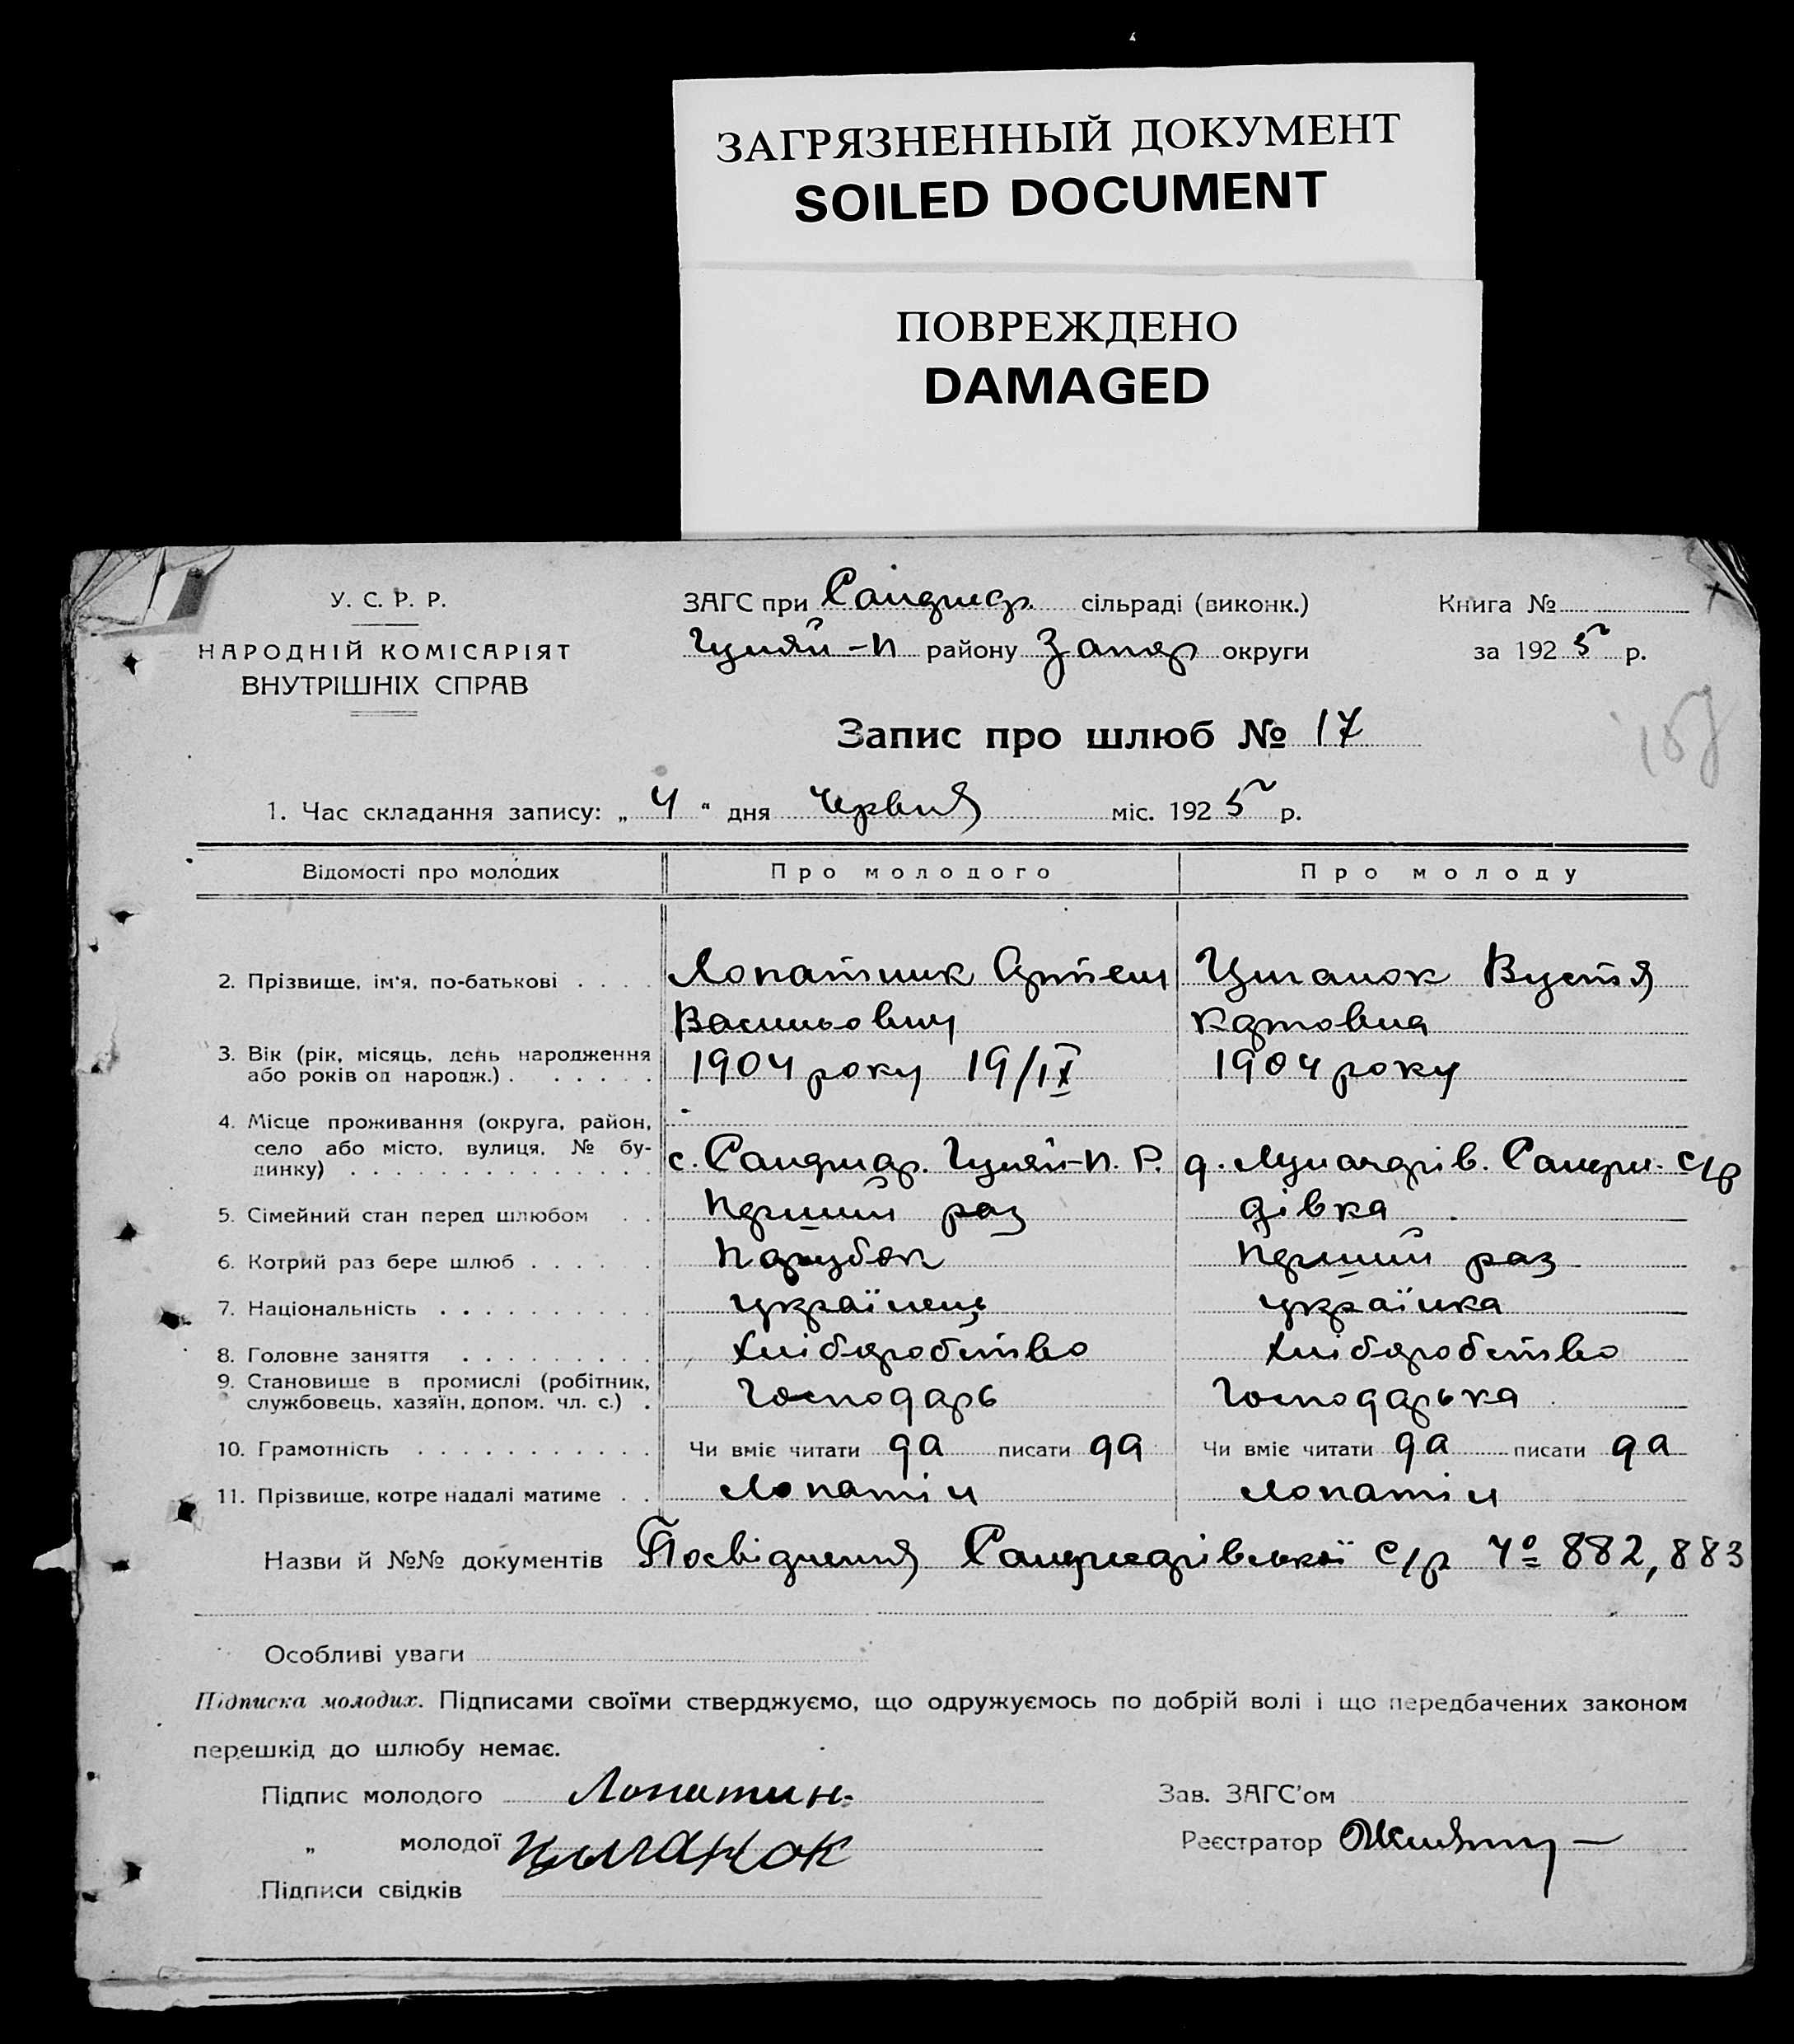 ЗАГРЯЗНЕННЫЙ ДОКУМЕНТ
SOILED DOCUMENT
ПОВРЕЖДЕНО
DAMAGED
У. С. Р. Р.
НАРОДНІЙ КОМІСАРІЯТ
ВНУТРІШНІХ СПРАВ
ЗАГС при сільраді (виконк.)
Гуляй-П району Запор округи
Книга №
за 1925 р.
Запис про шлюб № 17
1. Час складання запису: „ 4 “ дня Червня міс. 1925 р.
Відомості про молодих Про молодого Про молоду
2. Прізвище, ім'я, по-батькові . . . . Лопатник Артем Циганок Вустя
Васильович Карповна
3. Вік (рік, місяць, день народження
або років од народж.) . . . . . . 1904 року 19/IX 1904 року
4. Місце проживання (округа, район,
село або місто, вулиця, № бу-
динку) . . . . . . . . . . . . . . с. Гуляй-П. Р. С/р
5. Сімейний стан перед шлюбом . . Перший раз дівка
6. Котрий раз бере шлюб . . . . . Парубок Перший раз
7. Національність . . . . . . . . . . українець українка
8. Головне заняття . . . . . . . . . Хліборобство Хліборобство
9. Становище в промислі (робітник,
службовець, хазяїн, допом. чл. с.) . Господарь Господарька
10. Грамотність . . . . . . . . . . . Чи вміє читати да писати да Чи вміє читати да писати да
11. Прізвище, котре надалі матиме . . Лопатін Лопатін
Назви й №№ документів Посвідчення С/р № 882, 883
Особливі уваги
Підписка молодих. Підписами своїми стверджуємо, що одружуємось по добрій волі і що передбачених законом
перешкід до шлюбу немає.
Підпис молодого Лопатин Зав. ЗАГС'ом
„ молодої Цыганок Реєстратор
Підписи свідків